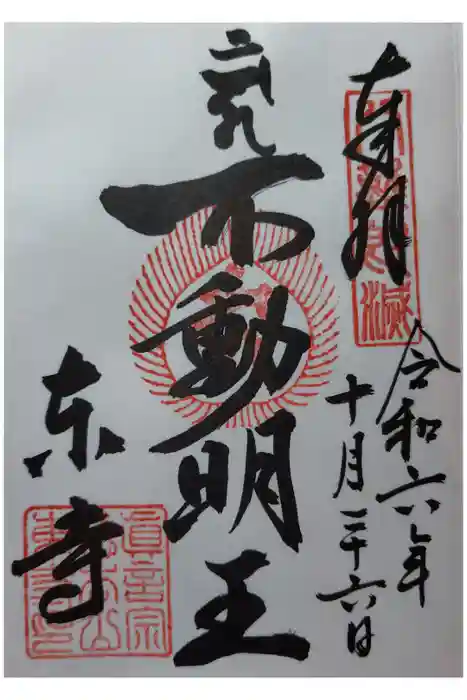 奉拝
令和六年
十月二十六日
不動明王
東寺